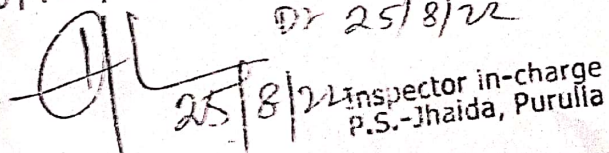 Dt 25/8/22
25/8/22 Inspector in-charge
P.S.-Jhalda, Purulia